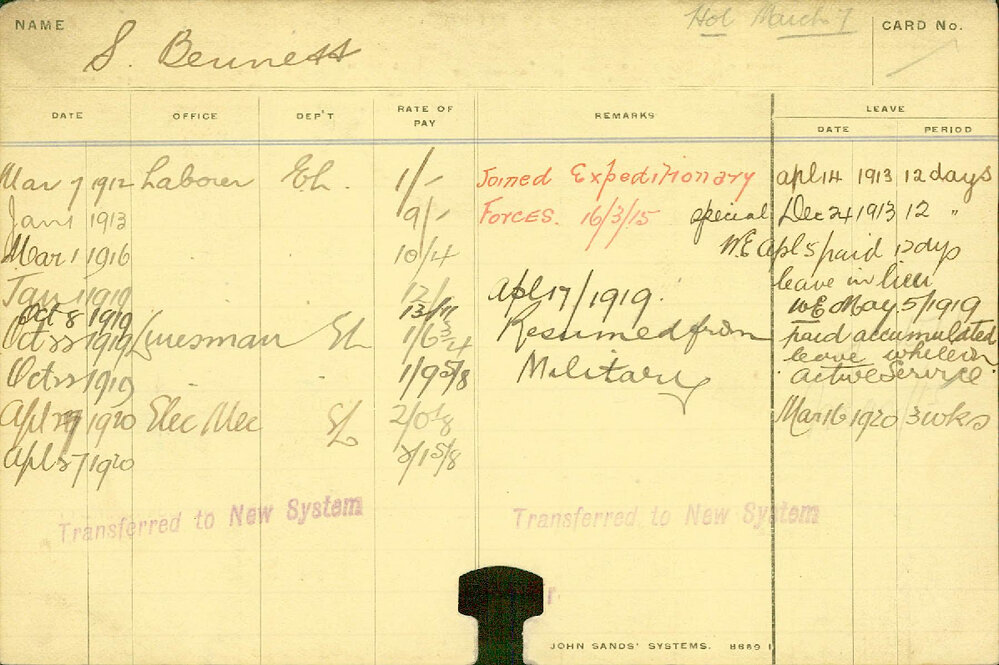 Hol March 7
NAME S. Bennett CARD No.
DATE OFFICE DEP'T RATE OF PAY REMARKS LEAVE
DATE PERIOD
Mar 7 1912 Labourer EL. 1/- Joined Expeditionary apl 14 1913 12 days
Jan 1 1913 9/- Forces. 16/3/15 special Dec 24 1913 12 "
Mar 1 1916 10/4 W.E apl 5 paid 12 dys
leave in lieu
Jan 1 1919 12/ Apl 17/1919. WE May 5/1919
Oct 8 1919 13/11
Oct 22 1919 Linesman EL 1/6 3/4 Resumed from paid accumulated
leave while on
Oct 22 1919 1/9 5/8 Military active Service
Apl 27 1920 Elec Mec EL 2/0 5/8 Mar 16 1920 3 wks
Apl 27 1920 2/1 5/8
Transferred to New System Transferred to New System
JOHN SANDS' SYSTEMS. 8689